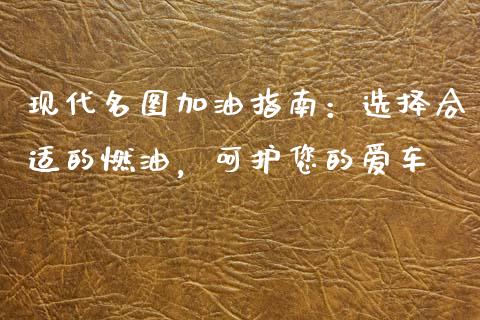 现代名图加油指南：选择合
适的燃油，呵护您的爱车